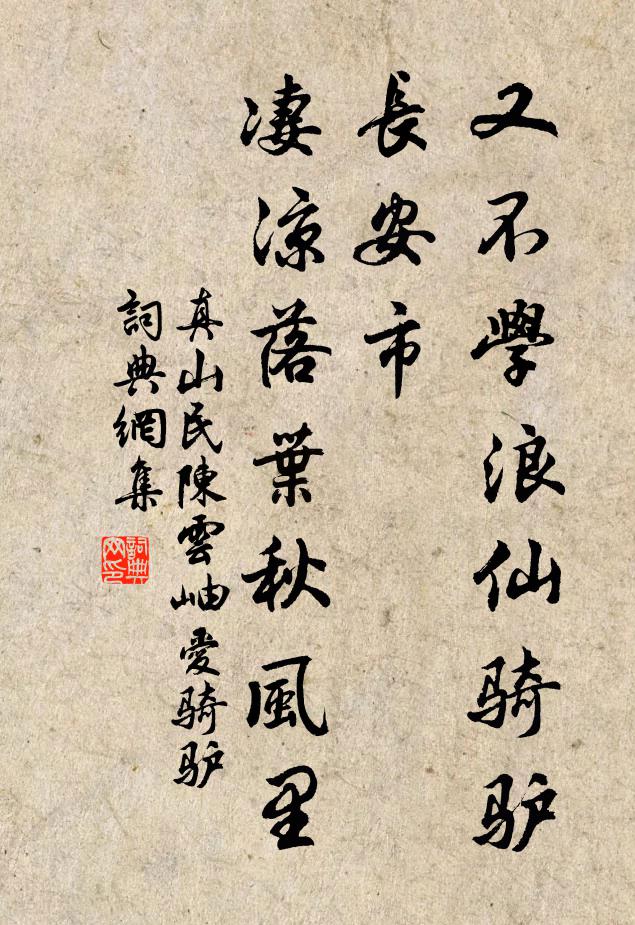 又不學浪仙骑驴
長安市
凄涼落葉秋風里
真山民陳雲岫愛骑驴
詞典網集
詞典
网印